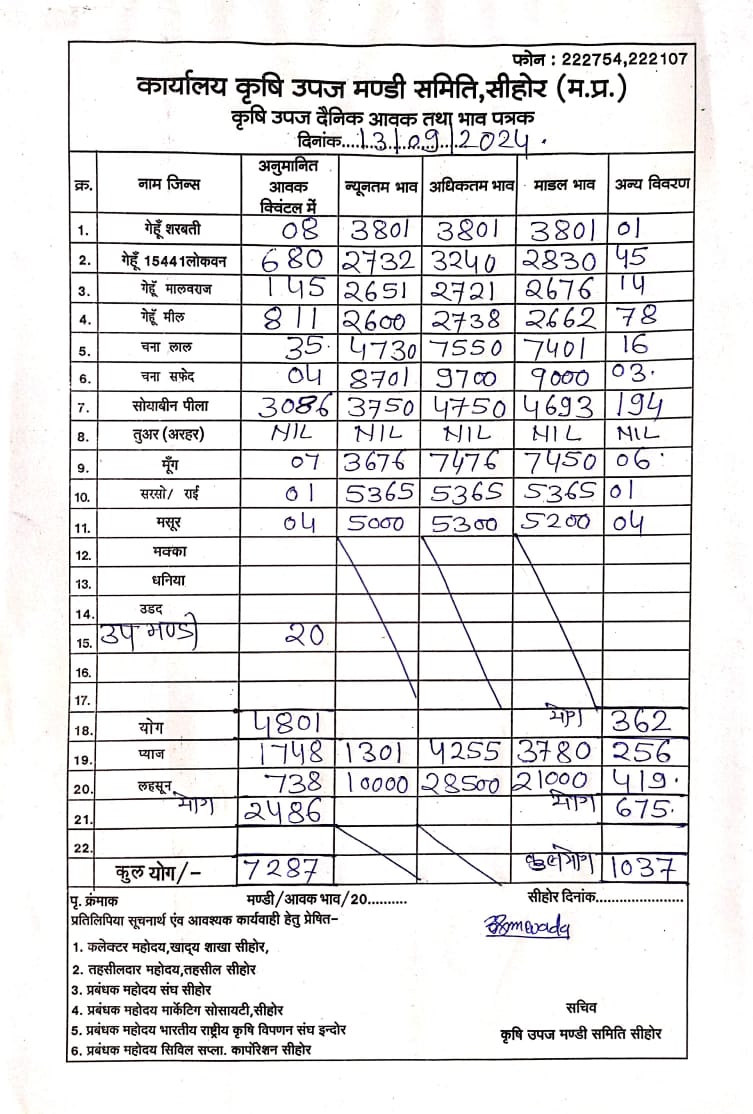 फोन : 222754,222107
कार्यालय कृषि उपज मण्डी समिति,सीहोर (म.प्र.)
कृषि उपज दैनिक आवक तथा भाव पत्रक
दिनांक....13/09/2024.
क्र. नाम जिन्स अनुमानित आवक क्विंटल में न्यूनतम भाव अधिकतम भाव माडल भाव अन्य विवरण
1. गेहूँ शरबती 08 3801 3801 3801 01
2. गेहूँ 15441लोकवन 680 2732 3240 2830 45
3. गेहूँ मालवराज 145 2651 2721 2676 14
4. गेहूँ मील 811 2600 2738 2662 78
5. चना लाल 35. 4730 7550 7401 16
6. चना सफेद 04 8701 9700 9000 03.
7. सोयाबीन पीला 3086 3750 4750 4693 194
8. तुअर (अरहर) NIL NIL NIL NIL NIL
9. मूँग 07 3676 7476 7450 06.
10. सरसो/ राई 01 5365 5365 5365 01
11. मसूर 04 5000 5300 5200 04
12. मक्का
13. धनिया
14. उडद
15. उप मण्डी 20
16.
17.
18. योग 4801 योग 362
19. प्याज 1748 1301 4255 3780 256
20. लहसून 738 10000 28500 21000 419.
21. योग 2486 योग 675.
22.
कुल योग/- 7287 कुलयोग 1037
पृ. क्रंमाक मण्डी/आवक भाव/20.......... सीहोर दिनांक......................
प्रतिलिपिया सूचनार्थ एंव आवश्यक कार्यवाही हेतु प्रेषित-
1. कलेक्टर महोदय,खांद्य शाखा सीहोर,
2. तहसीलदार महोदय,तहसील सीहोर
3. प्रबंधक महोदय संघ सीहोर
4. प्रबंधक महोदय मार्केटिंग सोसायटी,सीहोर
5. प्रबंधक महोदय भारतीय राष्ट्रीय कृषि विपणन संघ इन्दोर
6. प्रबंधक महोदय सिविल सप्ला. कार्पोरेशन सीहोर
सचिव
कृषि उपज मण्डी समिति सीहोर